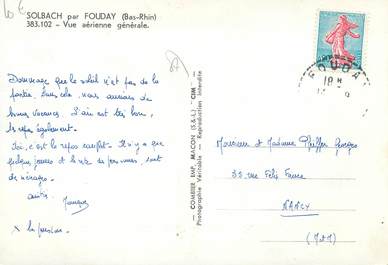 SOLBACH par FOUDAY (Bas-Rhin)
383.102 - Vue aérienne générale.
Dommage que le soleil n'est pas de la
partie. Sans cela, nous aurions de
bonnes vacances. L'air est très bon,
le repas également.
Ici, c'est le repos complet. Il n'y a que
quelques jeunes et le reste des personnes, sont
de ménages.
COMBIER IMP. MACON (S.&L.) "CIM"
Photographie Véritable - Reproduction interdite
FOUDAY
18 H
Monsieur et Madame Pfeiffer Georges
33 rue Félix Faure
NANCY
(M&M)